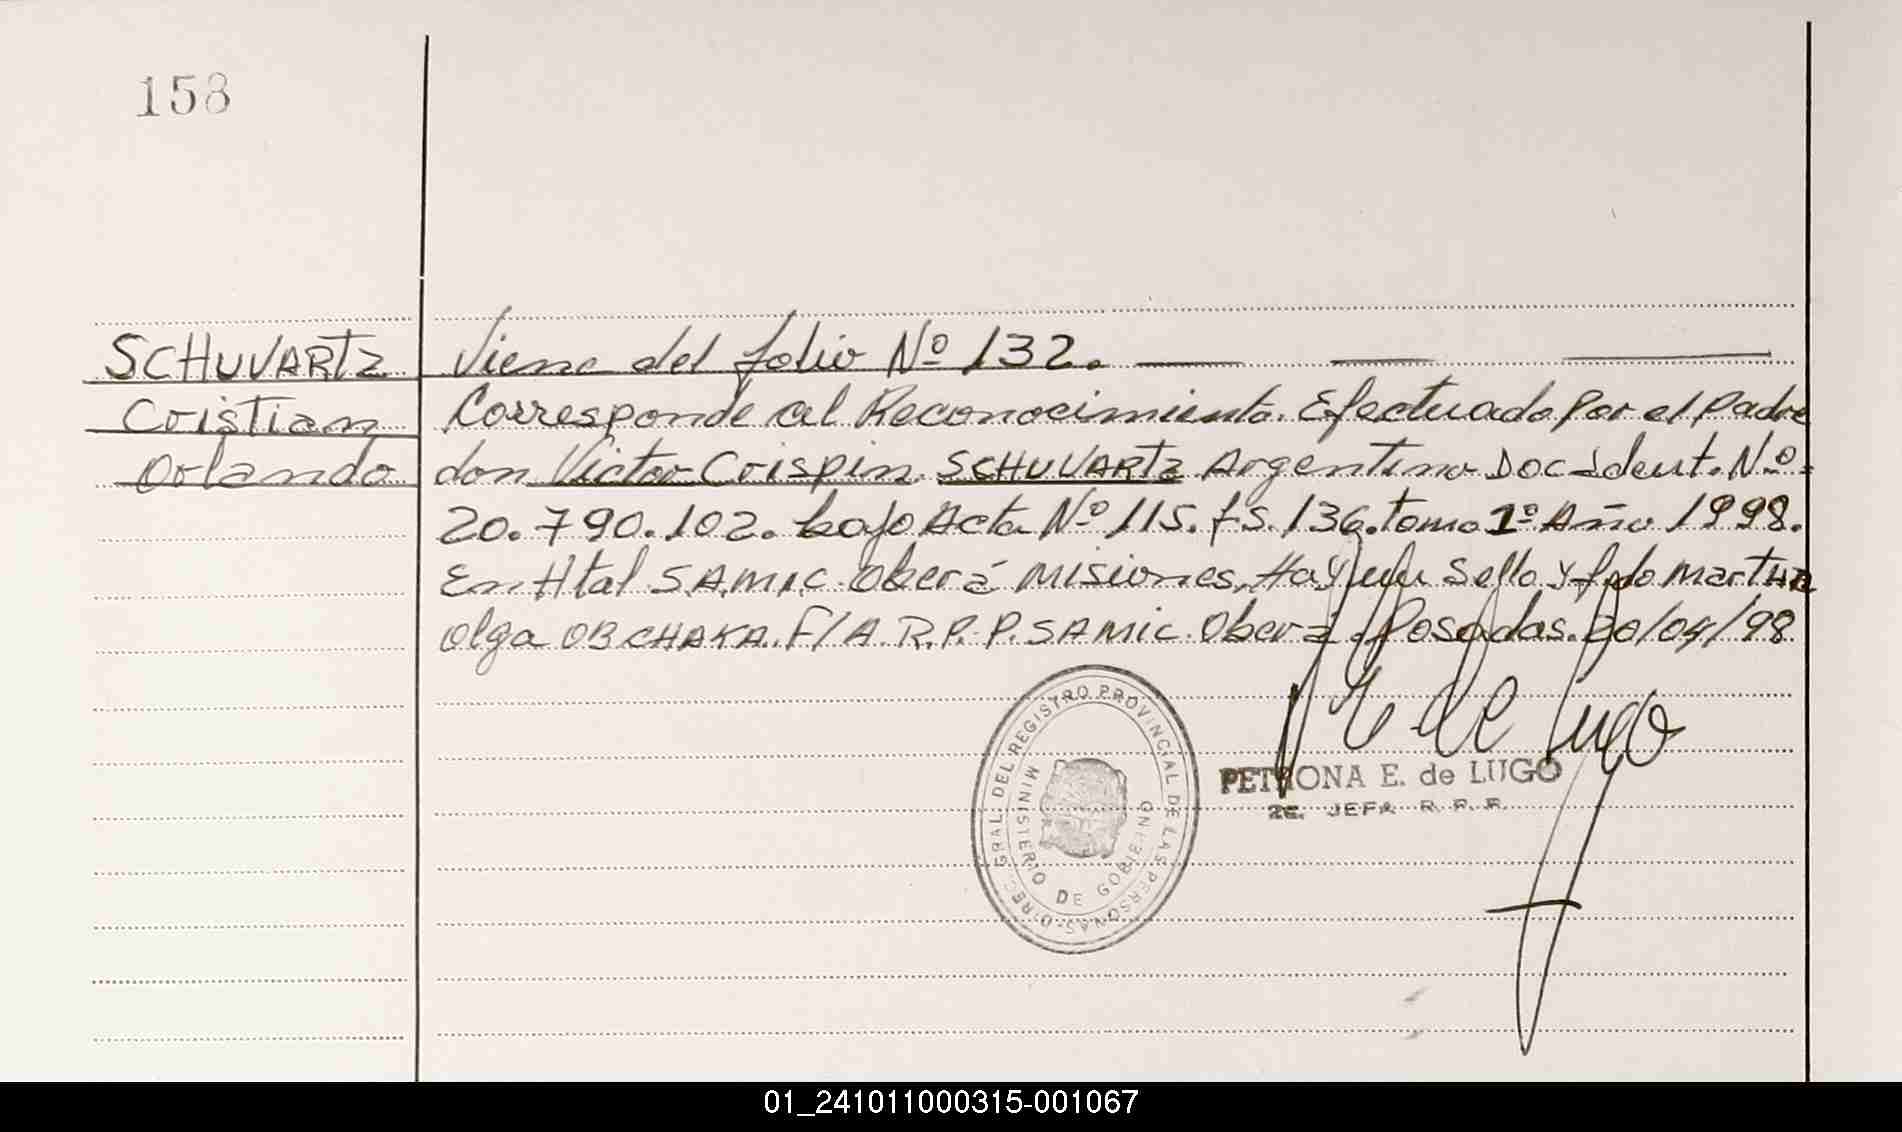 158
SCHUVARTZ
Cristian
Orlando
Viene del folio Nº 132.
Corresponde al Reconocimiento Efectuado Por el Padre
don Victor Crispin SCHUVARTZ Argentino Doc Ident. Nº
20.790.102. bajo Acta Nº 115. fs. 136. tomo 1º Año 1998.
En Htal S.A.M.I.C. Oberá Misiones, Hay un Sello y fdo
Olga OBCHAKA F/A R.P.P. SAMIC. Oberá Posadas. 20/04/98
DIREC. GRAL. DEL REGISTRO PROVINCIAL DE LAS PERSONAS
MINISTERIO DE GOBIERNO
PETRONA E. de LUGO
2E. JEFA R. P. P.
01_241011000315-001067